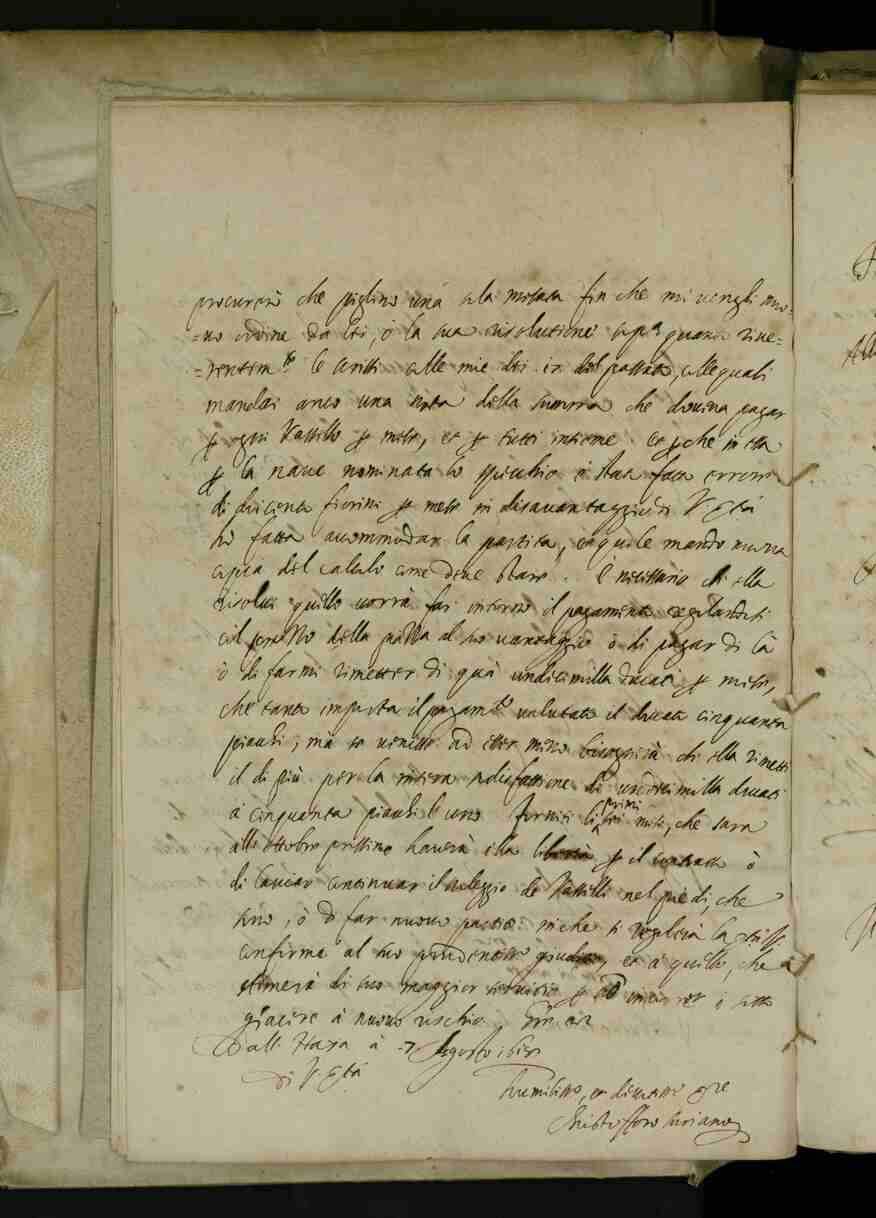 procurerò che piglino una a la misura fin che mi venghi nuo=
=vo ordine da lei, ò la sua risolutione sopra quanto rive=
=rentem.te le scrissi alle mie dei 12 del passato, alle quali
mandai anco una nota della summa che doveva pagar
ꝑ ogni Vassello ꝑ mese, et ꝑ tutti insieme. et ꝑche in essa
ꝑ la nave nominata lo specchio è stato fatto errore
di ducento fiorini ꝑ mese in disavantaggio di V. Ecc.a
hò fatto accommodar la partita, et quì le mando nuova
copia del calculo come deve stare. È necessario che ella
risolva quello vorrà far intorno il pagamento regolandosi
col prezzo della piazza al suo vantaggio ò di pagar di là
ò di farmi rimetter di quà undicimilla ducati ꝑ mese,
che tanto importa il pagam.to valutato il ducato cinquanta
piachi; mà se venisse ad esser meno bisognerà che ella rimetti
il di più per la intiera sodisfattione di undicimilla ducati
à cinquanta piachi l'uno. Forniti li primi sei mesi, che sarà
alli ottobre prossimo haverà ella libertà ꝑ il contratto ò
di lasciar continuar il noleggio de Vasselli nel piedi, che
sono, ò di far nuovo partito; in che si regolerà la
conforme al suo prudentissimo giuditio, et à quello, che
stimerà di suo maggior servitio ꝑ non
giacere à nuovo rischio. Gratie etc.
Dall' Haya à 7 Agosto 1618
Di V. Ecc.a
Humilissimo, et devotissimo ser.re
Christofforo Suriano